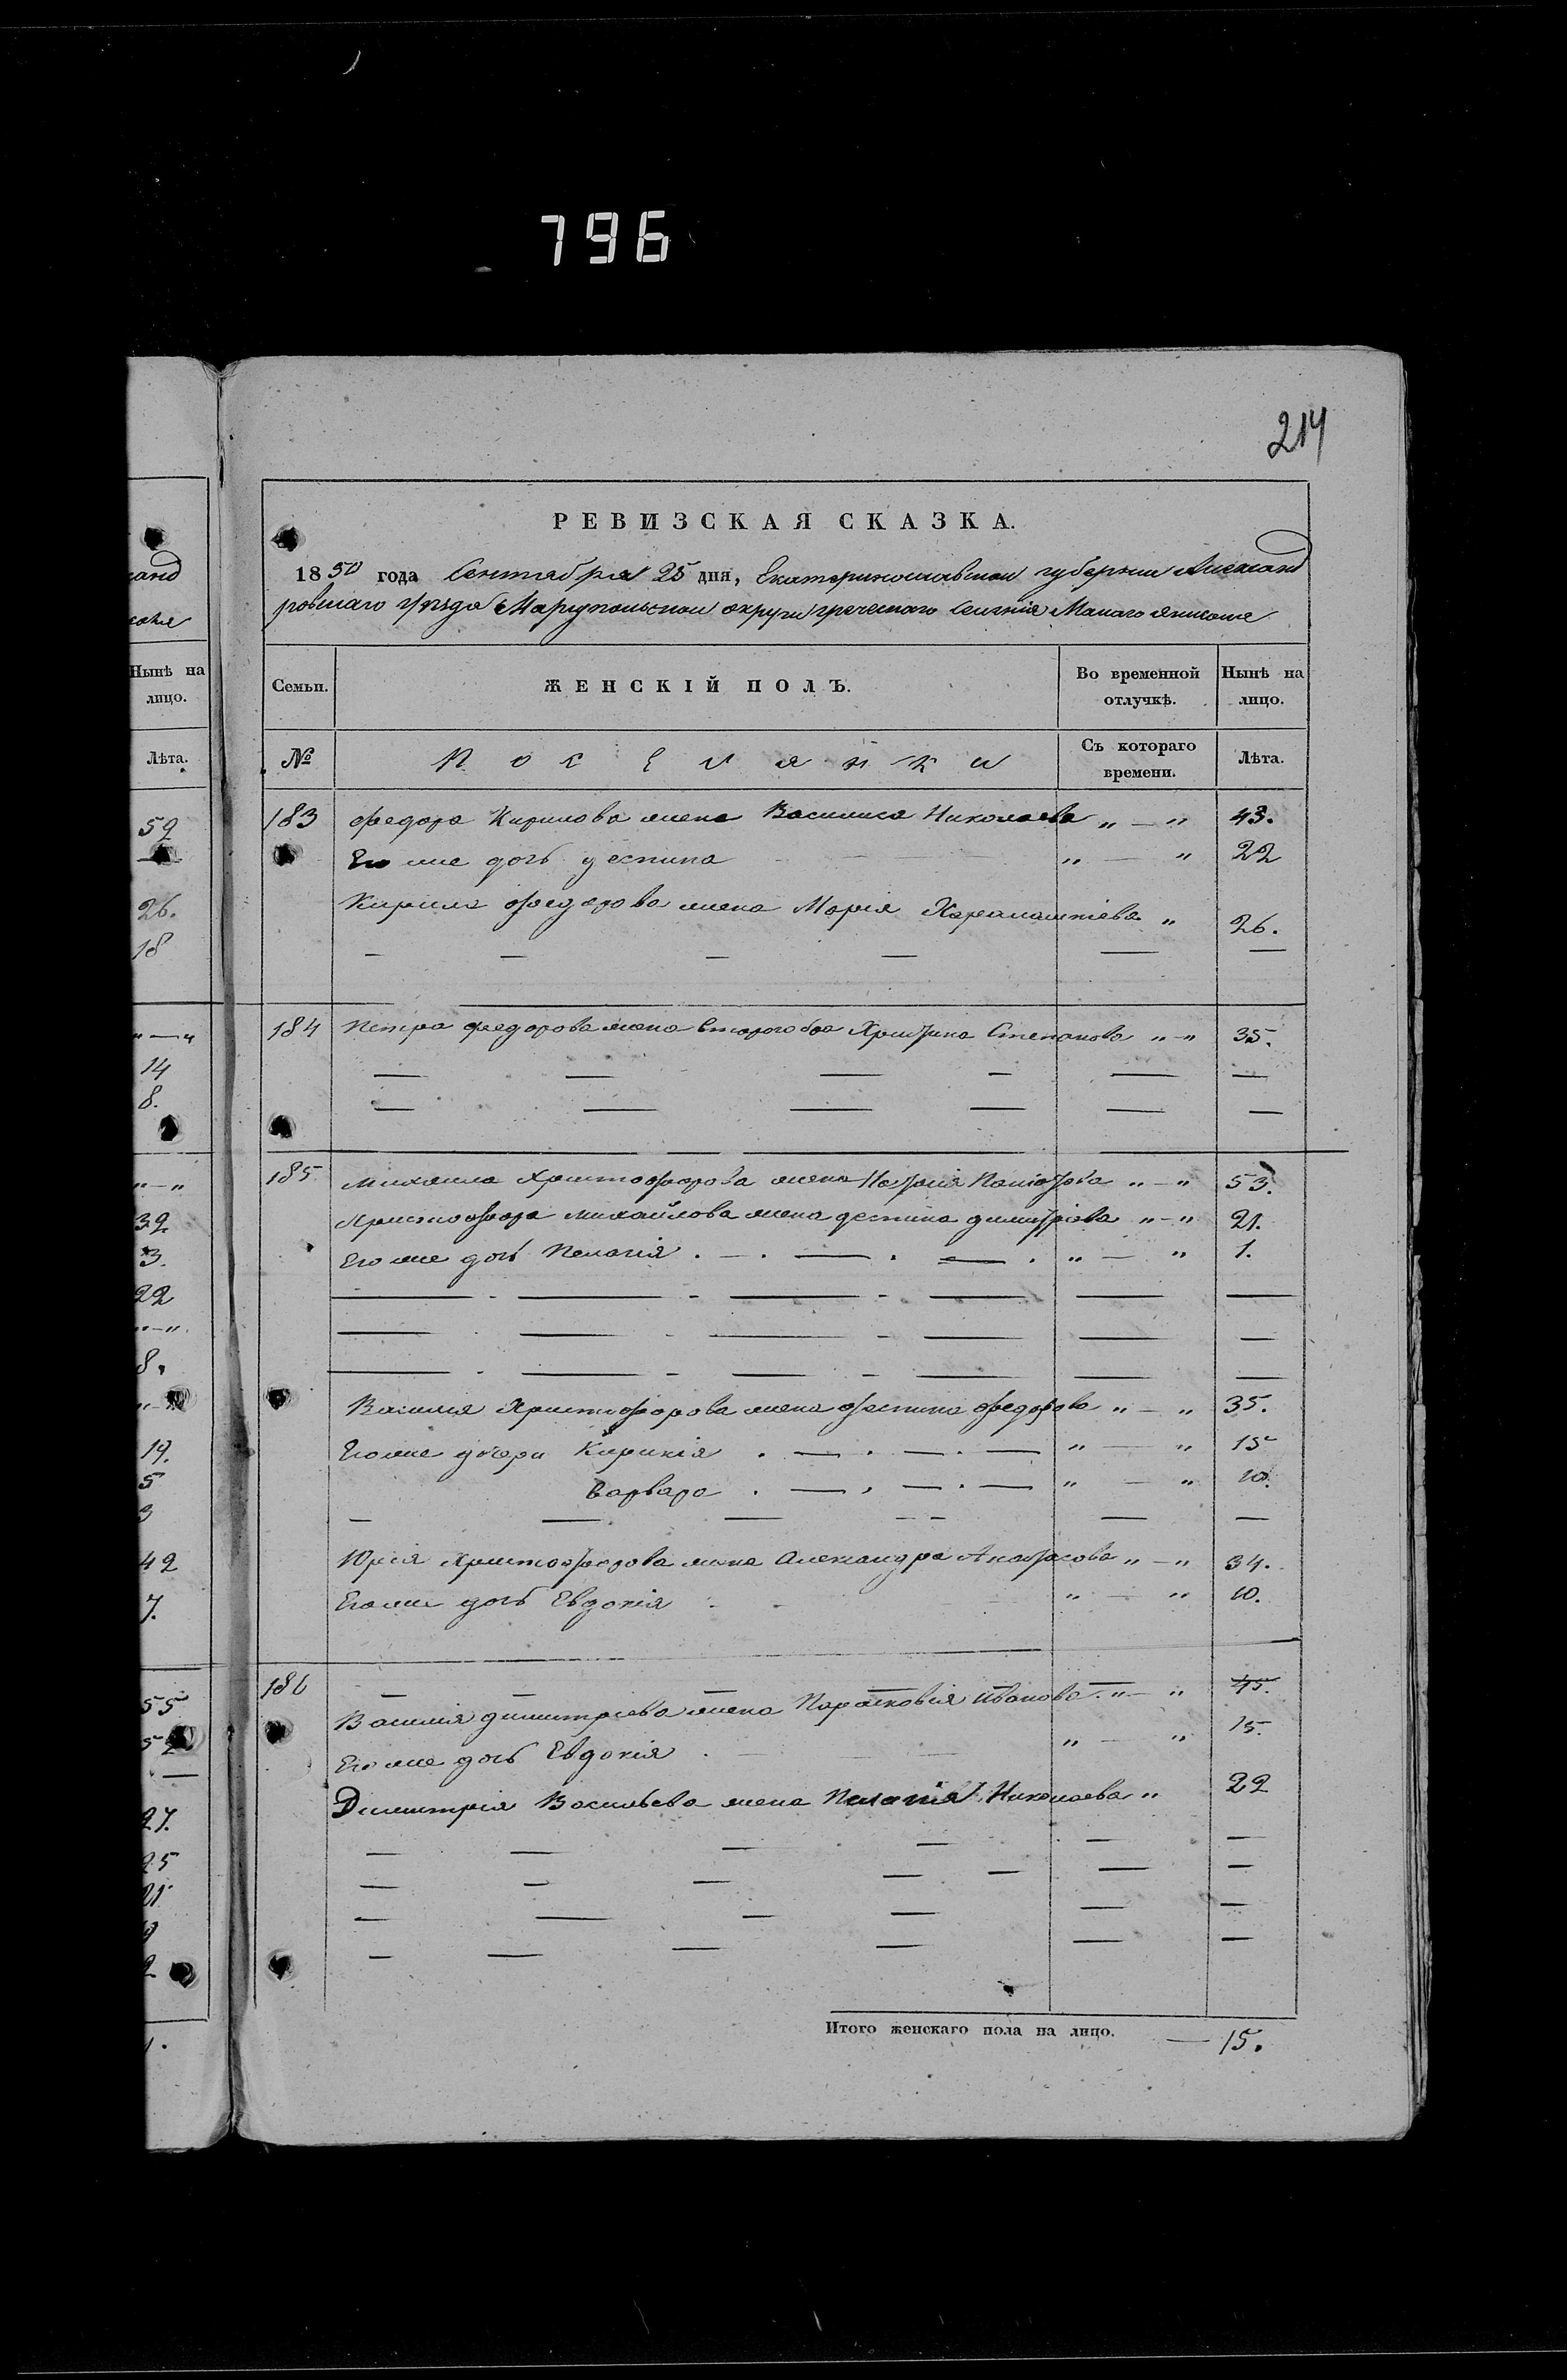 796
214
РЕВИЗСКАЯ СКАЗКА.
1850 года Сентября 25 дня, Екатеринославской губернии Александ
ровскаго уезда Мариупольской округи греческаго селенія Малаго Янисоля
Нынѣ на лицо.
Лѣта.
Семьи. ЖЕНСКІЙ ПОЛЪ. Во временной отлучкѣ. Нынѣ на лицо.
№ Поселянки Съ котораго времени. Лѣта.
183 Федора Кирилова жена Василиса Николаева „ — „ 43.
Его же дочь деспина „ — „ 22
Кирила Федорова жена Марія „ 26.
184 Петра Федорова жена втораго Христина Степанова „ — „ 35.
185 Михаила Христофорова жена „ — „ 53.
Христофора Михайлова жена деспина димитріева „ — „ 21.
Его же дочь Пелагія „ — „ 1.
Василія Христофорова жена Федорова „ — „ 35.
Его же дочери Кирикія „ — „ 15
Варвара „ — „ 10.
Юрія Христофорова жена Александра „ — „ 34.
Его же дочь Евдокія „ — „ 10.
186
Василія димитріева жена Парасковія Иванова „ — „ 45.
Его же дочь Евдокія „ — „ 15.
Димитрія Васильева жена Пелагія Николаева „ 22
Итого женскаго пола на лицо. — 15.